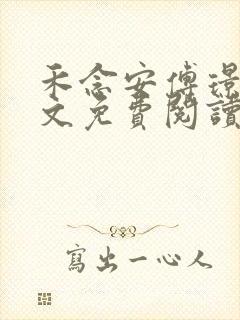 禾念安傅璟
文免費閱讀
寫出一心人